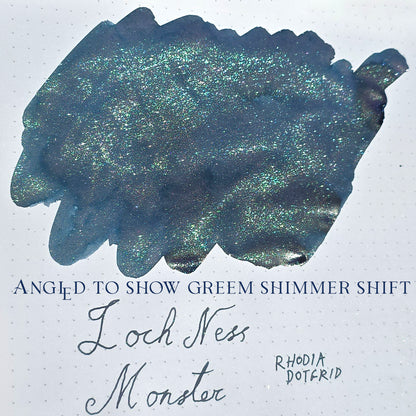 ANGLED TO SHOW GREEM SHIMMER SHIFT
Loch Ness
Monster
RHODIA
DOTGRID